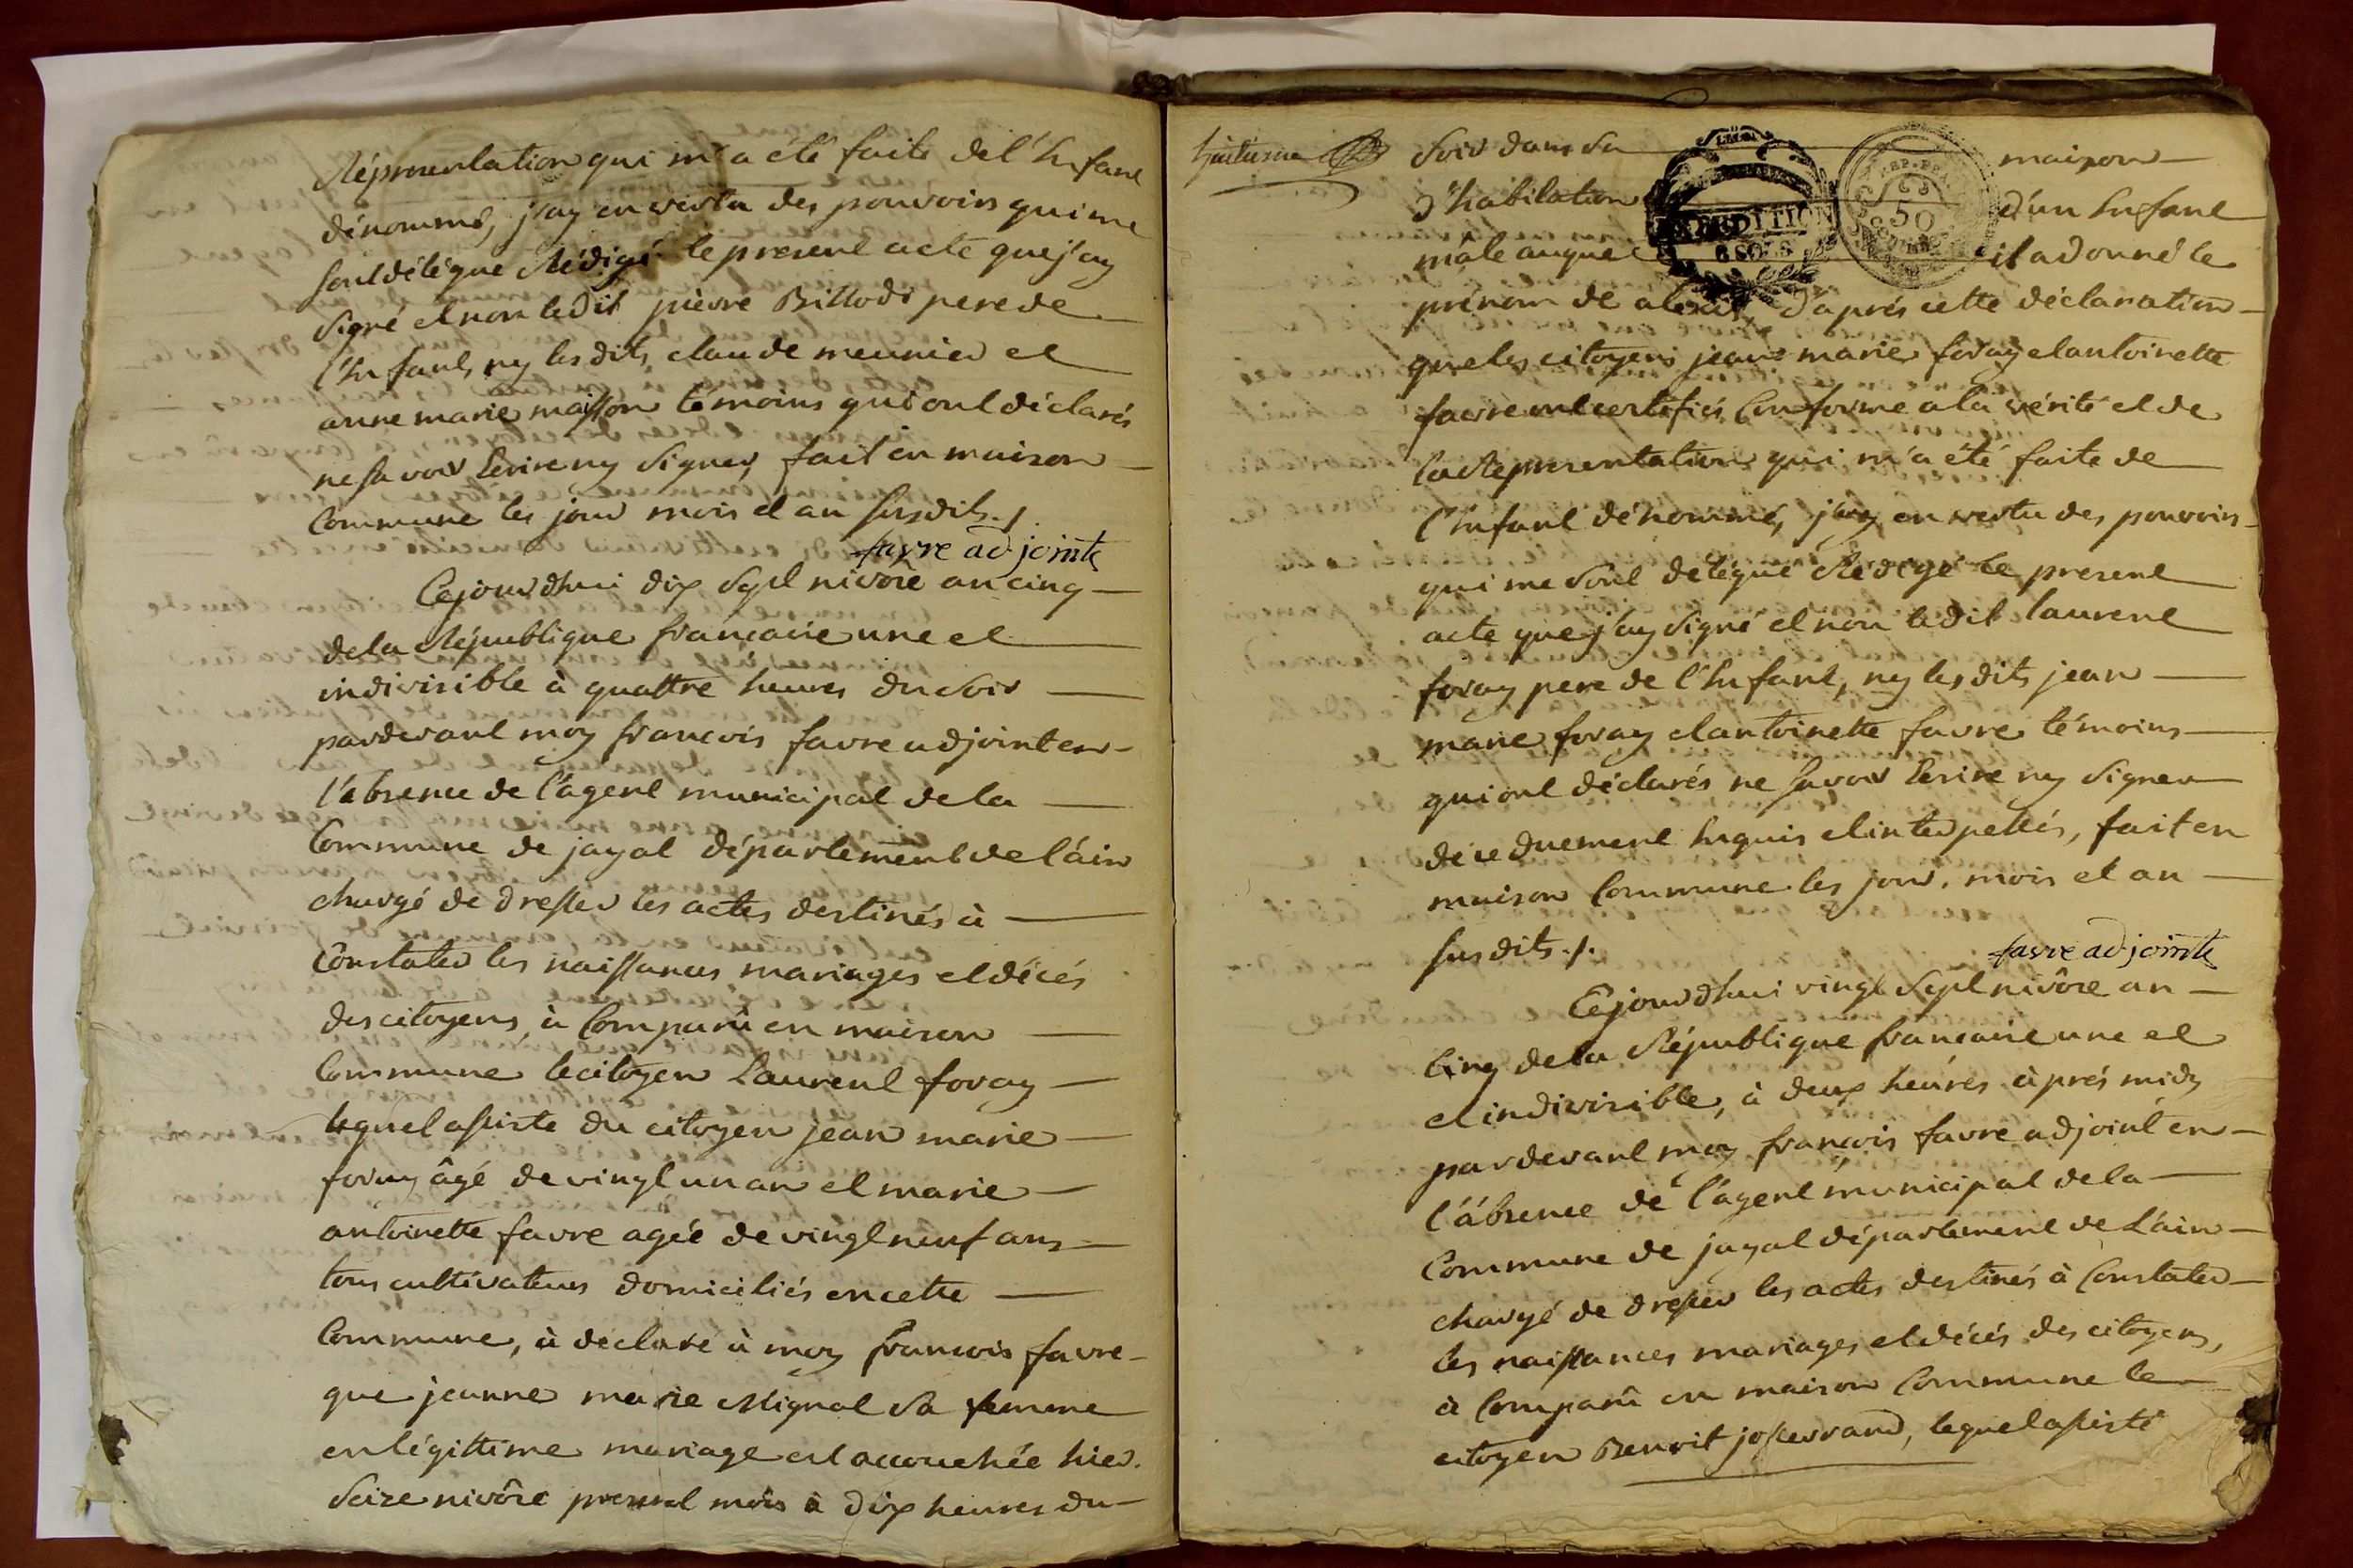 Réprésentation qui m'a été faite de l'Enfant
dénommé, j'ay en vertu des pouvoirs qui me
sont délégué Rédigé le present acte que j'ay
signé et non le dit pièrre Billods pere de
l'Enfant, ny les dits claude meunier et
anne marie maisson témoins qui ont déclarés
ne savoir Ecrire ny signer, fait en maison
Commune les jour mois et an susdits ./.
favre adjointe
Cejourdhui dix sept nivôse an cinq
de la République francaise une et
indivisible à quattre heures du soir
pardevant moy francois favre adjoint en
l'absence de l'agent municipal de la
Commune de jayat département de l'áin
chargé de dresser les actes destinés à
Constater les naissances mariages et décés
des citoyens, à Comparû en maison
Commune le citoyen Laurent foray
lequel assiste du citoyen jean marie
foray âgé de vingt un an et marie
antoinette favre agée de vingt neuf ans
tous cultivateurs domiciliés en cette
Commune, à déclaré à moy francois favre
que jeanne marie Mignot sa femme
en légittime mariage est accouchée hier
seize nivôse present mois à dix heures du
huitieme
soir dans sa maison
d'habitation d'un Enfant
mâle auquel il a donné le
EXPEDITION
6 SOLS
REP. FRA.
50
prénom de alexis, d'aprés cette déclaration
que les citoyens jean marie foray et antoinette
favre ont certifiés Conforme a la vérité et de
la Representation qui m'a été faite de
l'Enfant dénommé, j'ay en vertu des pouvoirs
qui me sont délégué Redigé le present
acte que j'ay signé et non le dit laurent
foray pere de l'Enfant, ny les dits jean
marie foray et antoinette favre témoins
qui ont déclarés ne savoir Ecrire ny signer
de ce duement Enquis et interpellés, fait en
maison Commune les jour, mois et an
susdits ./.
favre adjointe
Cejourdhui vingt sept nivôse an
Cinq de la République francaise une et
et indivisible, à deux heures àprés midy
pardevant moy françois favre adjoint en
l'ábsence de l'agent municipal de la
Commune de jayat département de L'áin
chargé de dresser les actes destinés à Constater
les naissances mariages et décés des citoyens,
à Comparû en maison Commune le
citoyen Benoit josserrand, lequel assisté